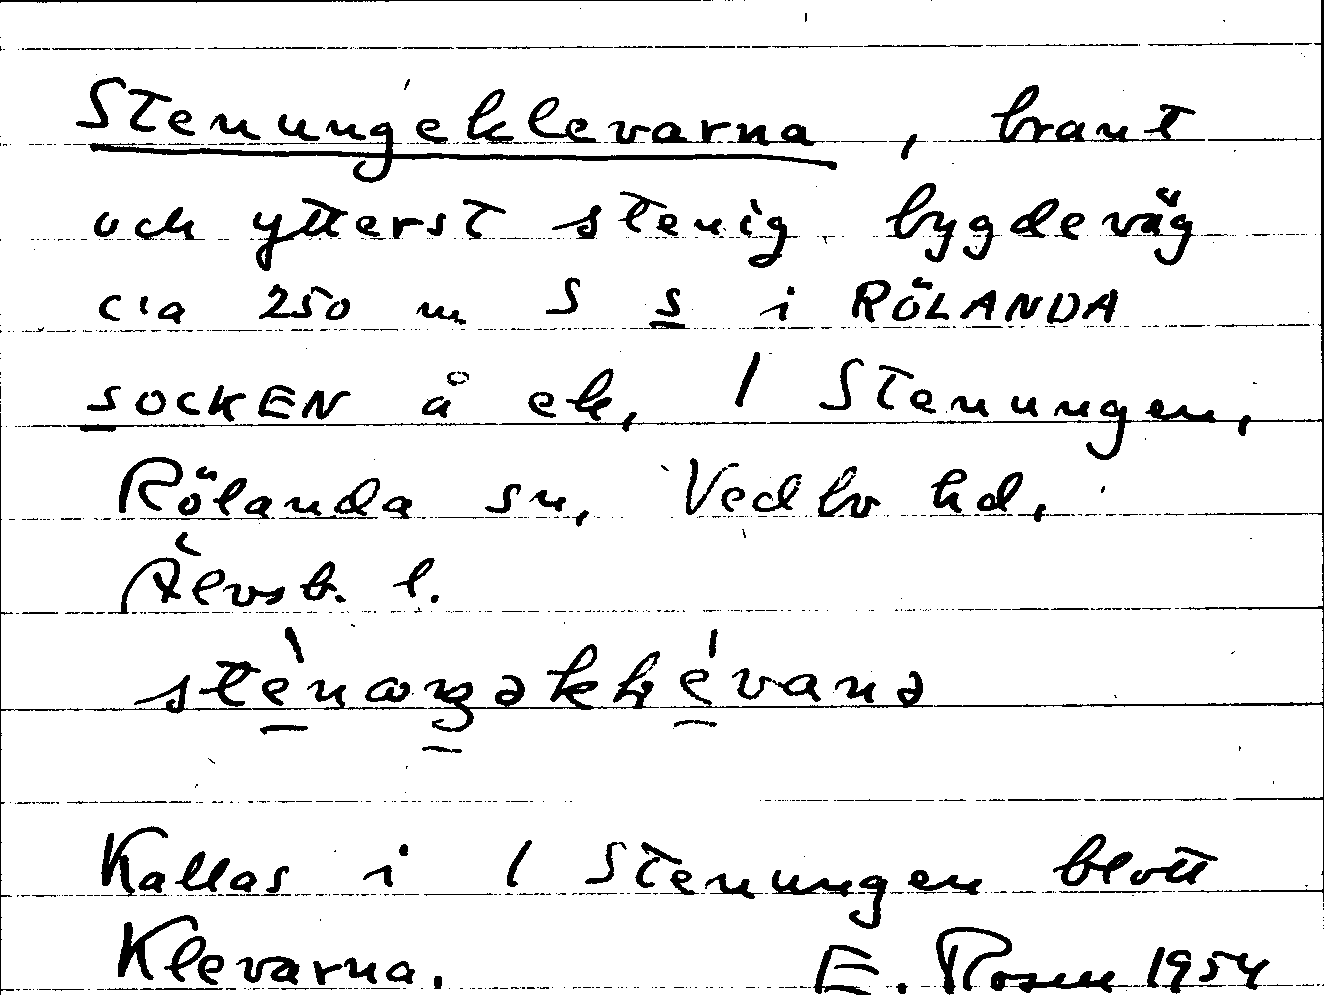 Stenungeklevarna, brant
och ytterst stenig bygdeväg
c:a 250 m S s i RÖLANDA
SOCKEN å ek, 1 Stenungen,
Rölanda sn, Vedbo hd,
Älvsb. l.
Kallas i 1 Stenungen blott
Klevarna. E. Rosen 1954